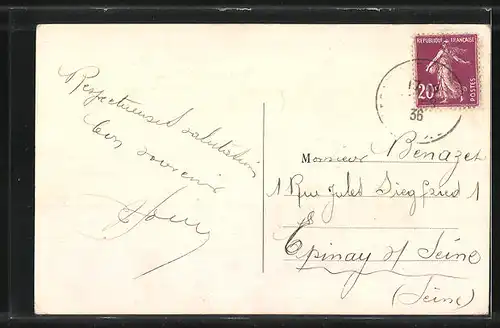 Respectueuses salutations
bon souvenir
REPUBLIQUE FRANÇAISE
20c
POSTES
36
Monsieur Benazet
1 Rue Jules Siegfried 1
Epinay s/ Seine
(Seine)